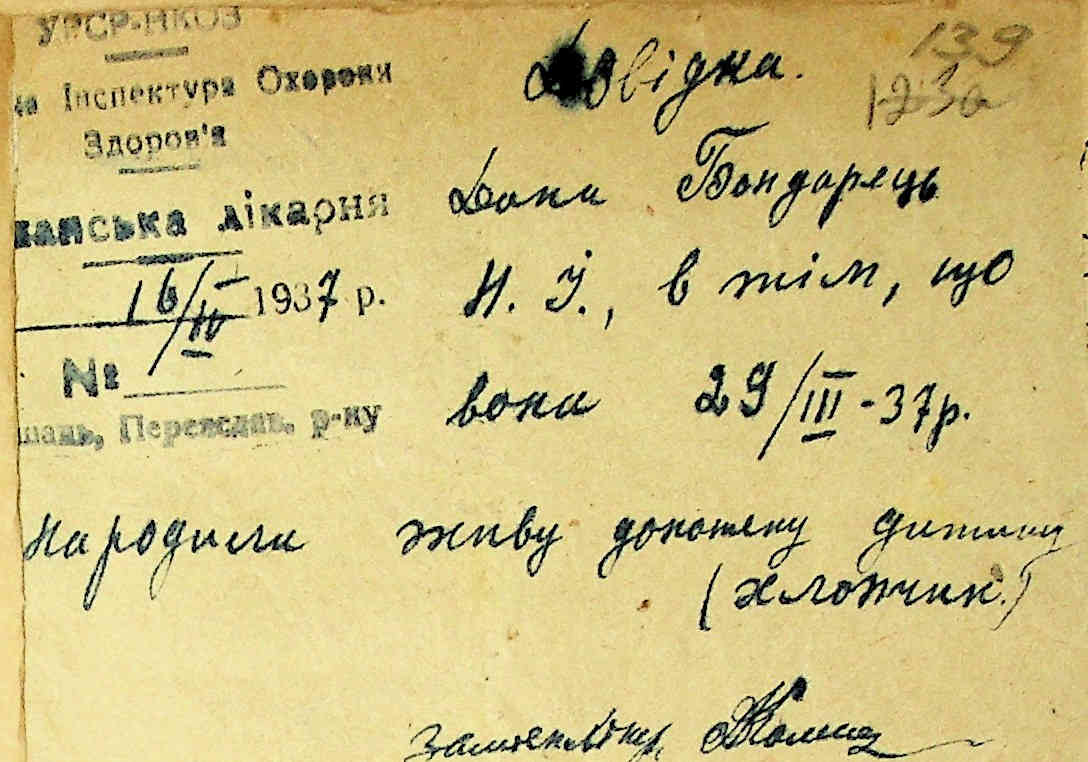 УРСР-НКОЗ
на Інспектура Охорони
Здоров'я
ська лікарня
16/IV 1937 р.
№
шань, Переяслав. р-ну
139
123а
Довідка.
Дана Бондарець
Н. І., в тім, що
вона 29/III-37р.
народила живу доношену дитину
(хлопчик.)